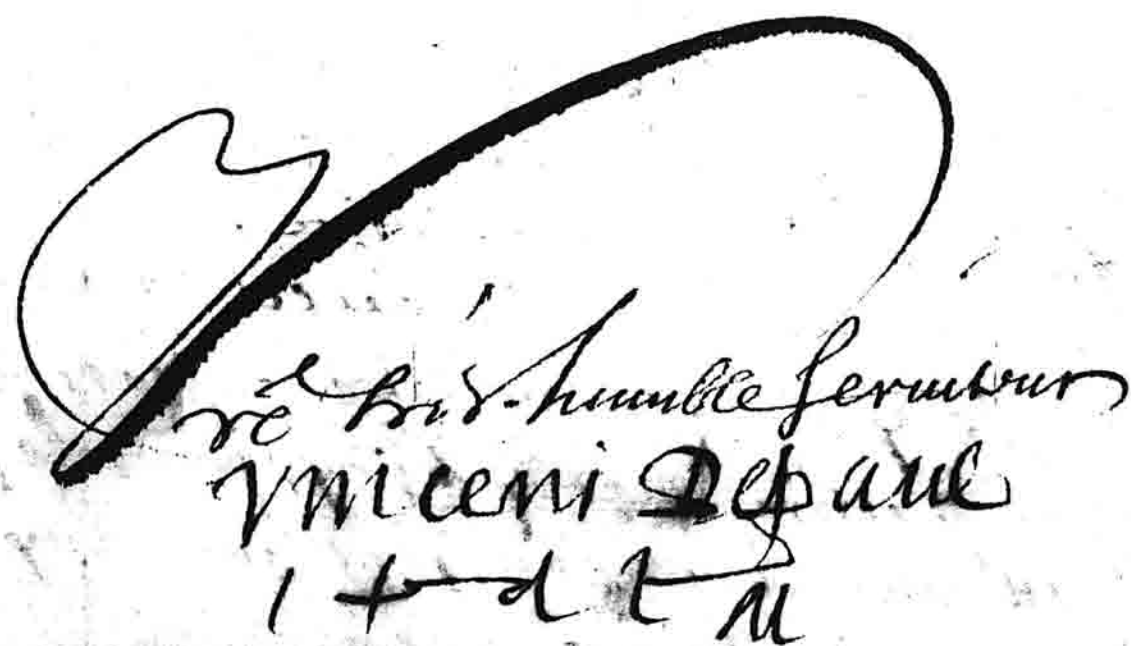 vrē très-humble serviteur
Vincent Depaul
i + d l M